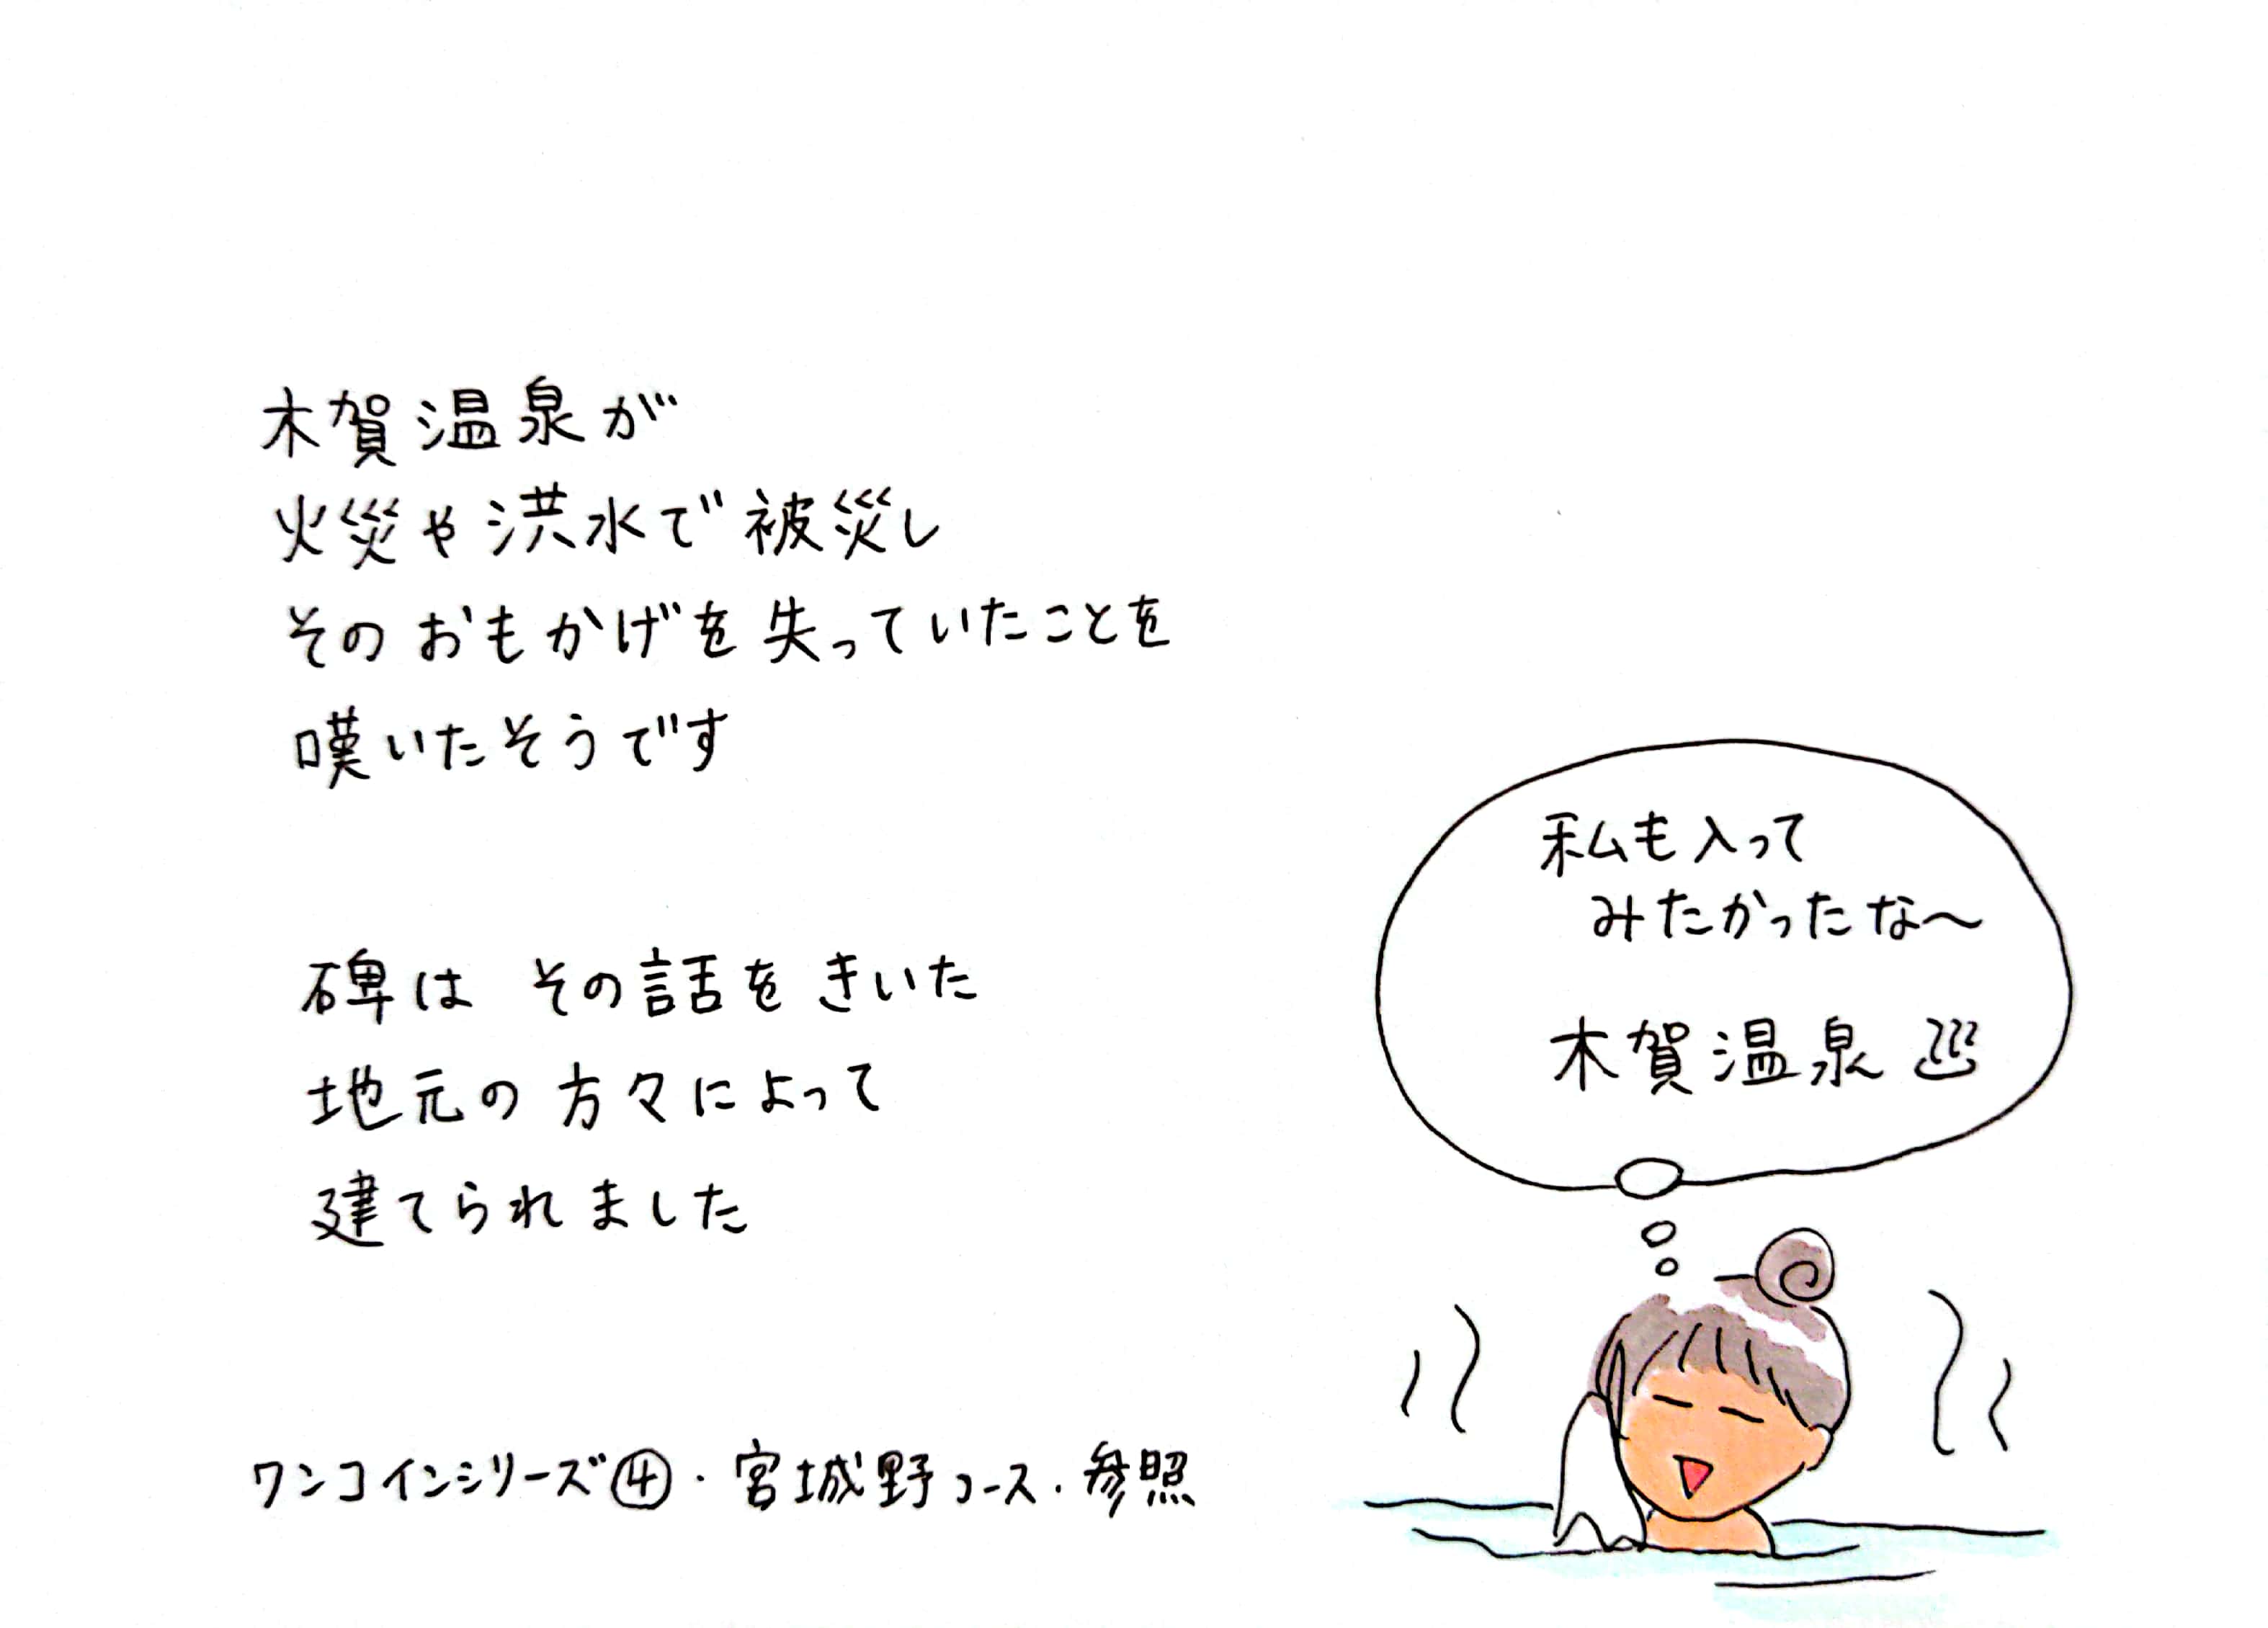 木賀温泉が
火災や洪水で被災し
そのおもかげを失っていたことを
嘆いたそうです
碑は その話をきいた
地元の方々によって
建てられました
ワンコインシリーズ④・宮城野コース・参照
私も入って
みたかったな〜
木賀温泉♨